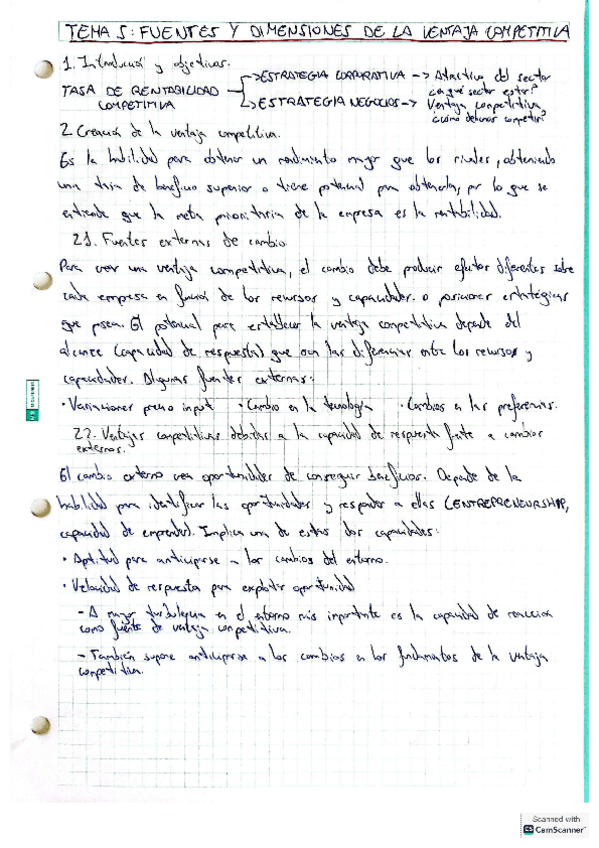 TEMA 5: FUENTES Y DIMENSIONES DE LA VENTAJA COMPETITIVA
1. Introducción y objetivos.
TASA DE RENTABILIDAD COMPETITIVA
→ ESTRATEGIA CORPORATIVA → Atractivo del sector ¿en qué sector estar?
→ ESTRATEGIA NEGOCIOS → Ventaja competitiva, ¿cómo debemos competir?
2. Creación de la ventaja competitiva.
Es la habilidad para obtener un rendimiento mayor que los rivales, obteniendo
una tasa de beneficio superior o tiene potencial para obtenerla, por lo que se
entiende que la meta prioritaria de la empresa es la rentabilidad.
2.1. Fuentes externas de cambio
Para crear una ventaja competitiva, el cambio debe producir efectos diferentes sobre
cada empresa en función de los recursos y capacidades o posiciones estratégicas
que posean. El potencial para establecer la ventaja competitiva depende del
alcance (capacidad de respuesta) que con las diferencias entre los recursos y
capacidades. Algunas fuentes externas:
· Variaciones precio input · Cambio en la tecnología · Cambios en las preferencias.
2.2. Ventajas competitivas debidas a la capacidad de respuesta frente a cambios
externos.
El cambio externo crea oportunidades de conseguir beneficios. Depende de la
habilidad para identificar las oportunidades y responder a ellas (ENTREPRENEURSHIP,
capacidad de emprender). Implica una de estas dos capacidades:
· Aptitud para anticiparse a los cambios del entorno.
· Velocidad de respuesta para explotar oportunidad
- A mayor turbulencia en el entorno más importante es la capacidad de reacción
como fuente de ventaja competitiva.
- También supone anticiparse a los cambios en los fundamentos de la ventaja
competitiva.
Scanned with
CS CamScanner